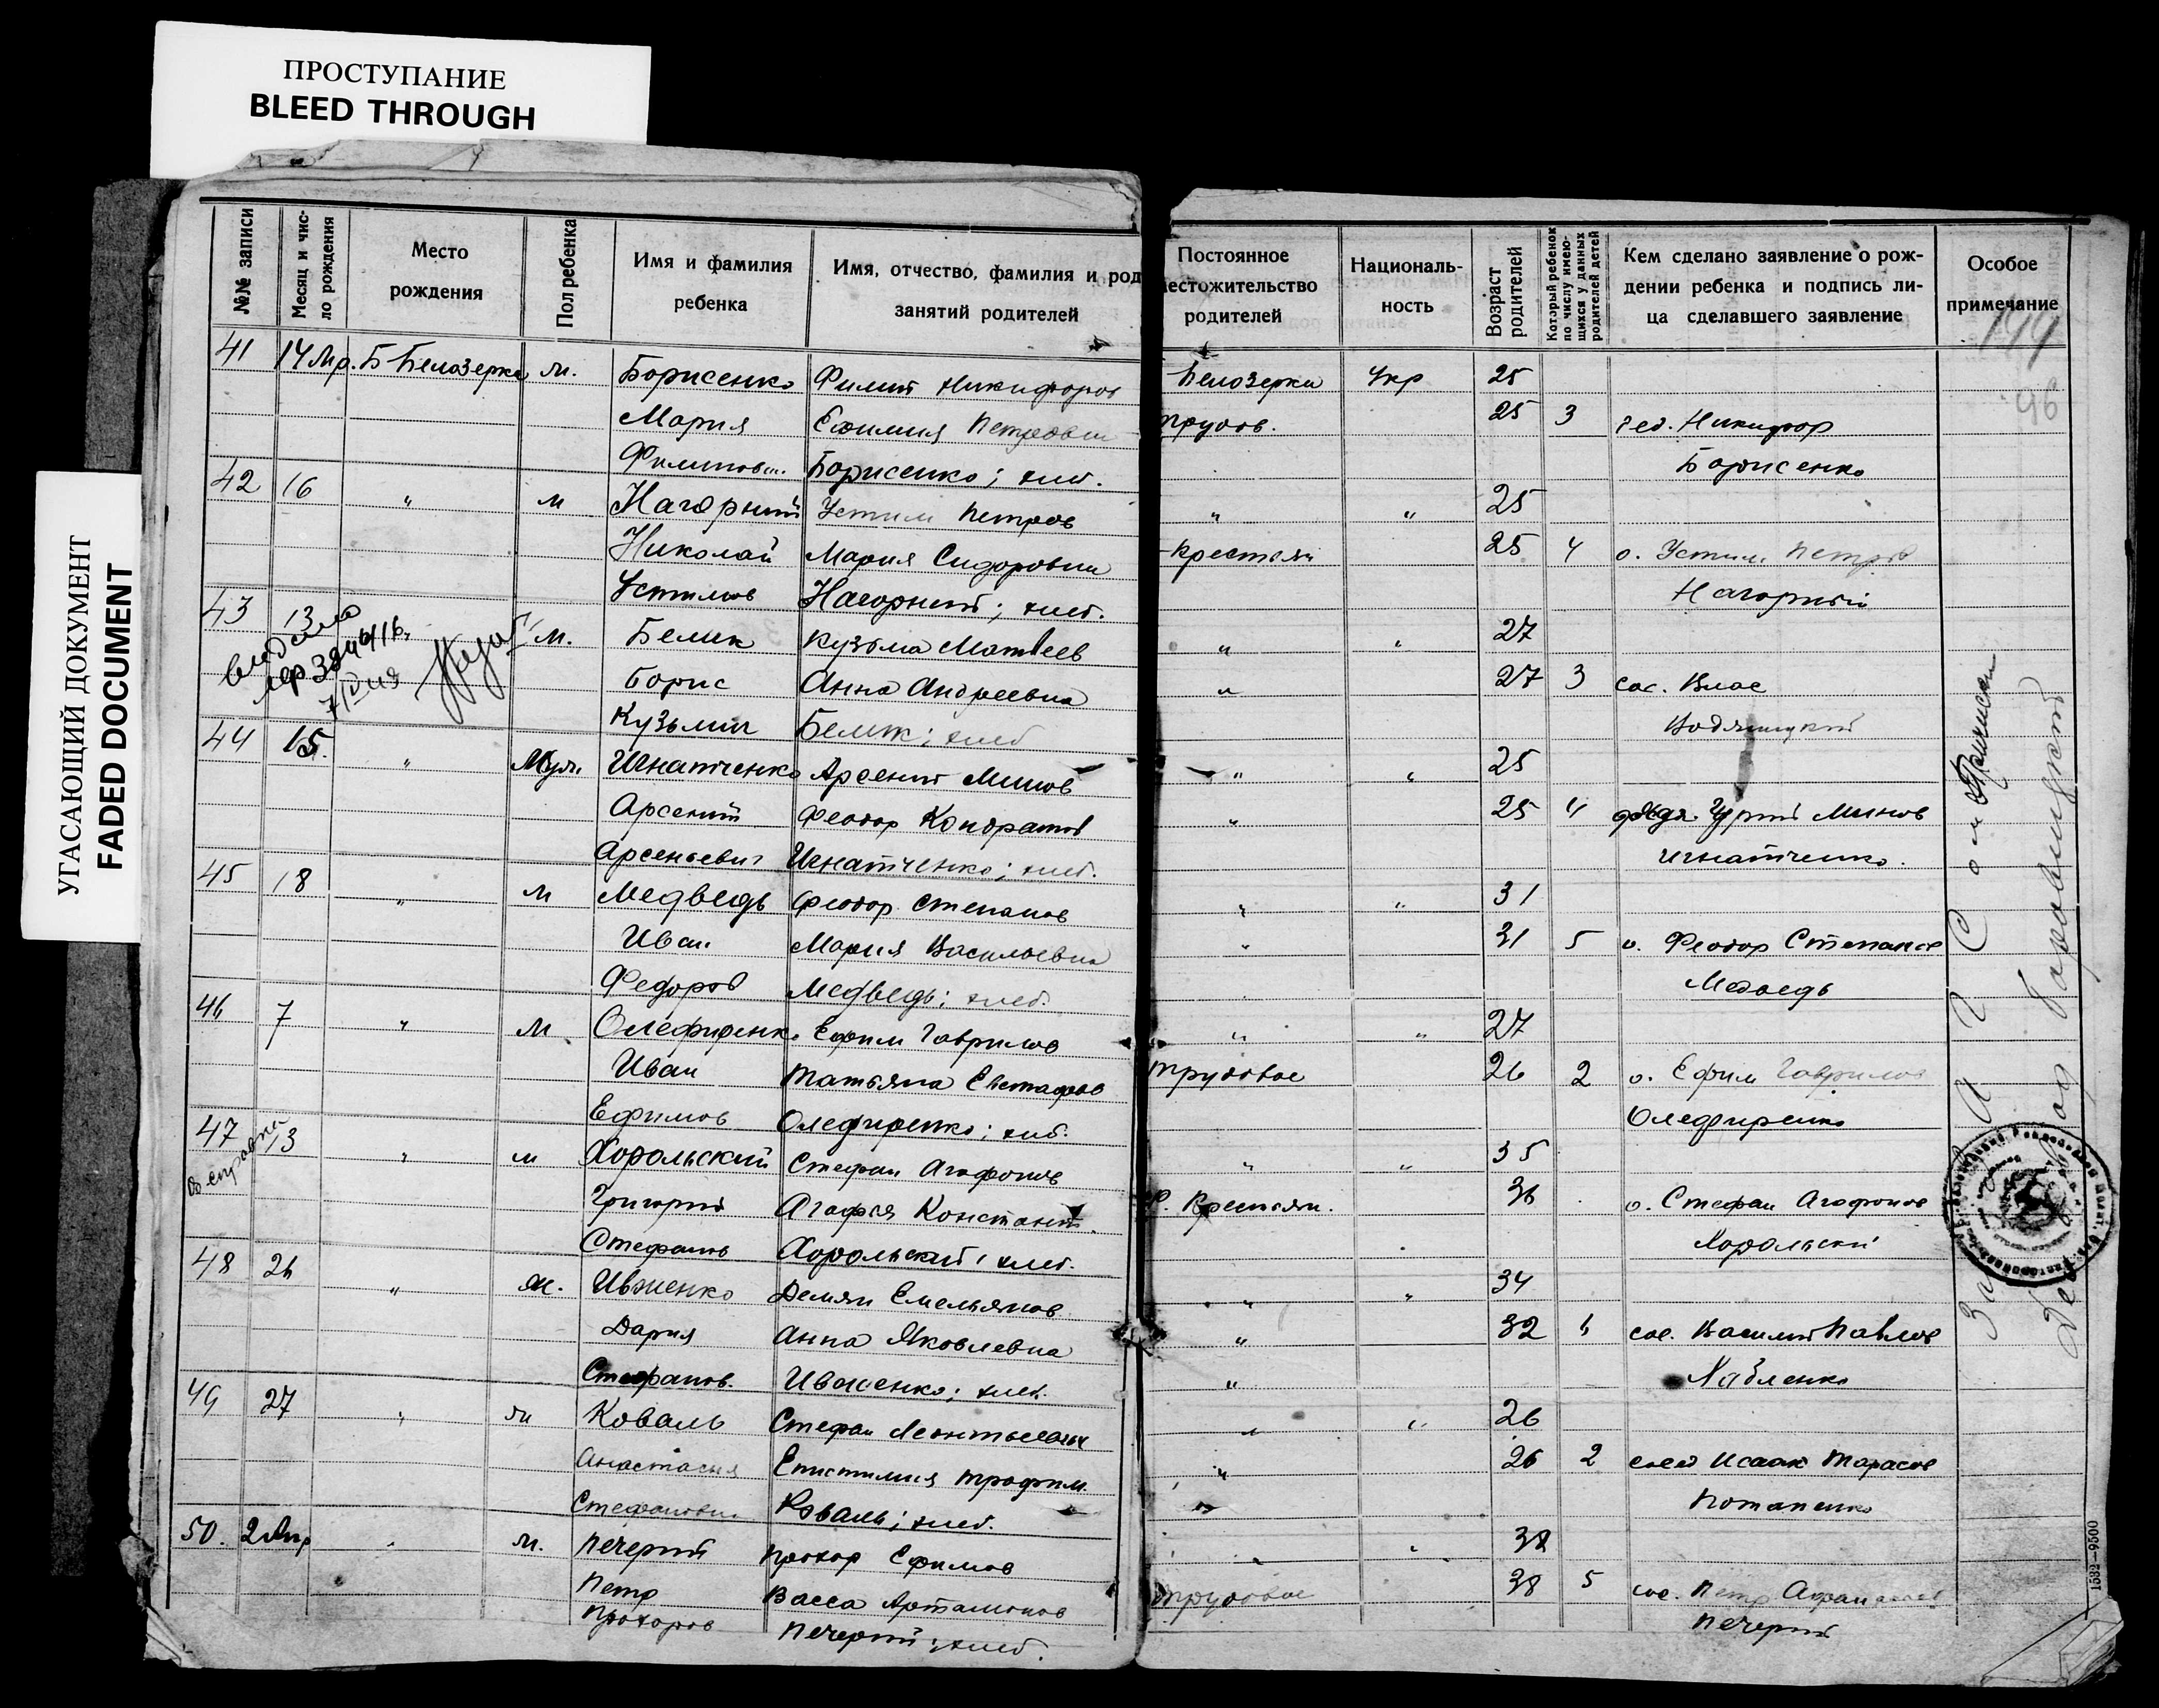 ПРОСТУПАНИЕ
BLEED THROUGH
УГАСАЮЩИЙ ДОКУМЕНТ
FADED DOCUMENT
№№ записи
Месяц и чис-
ло рождения
Место
рождения
Пол ребенка
Имя и фамилия
ребенка
Имя, отчество, фамилия и род
занятий родителей
Постоянное
местожительство
родителей
Националь-
ность
Возраст
родителей
Который ребенок
по числу имею-
щихся у данных
родителей детей
Кем сделано заявление о рож-
дении ребенка и подпись ли-
ца сделавшего заявление
Особое
примечание
96
41 14 Мр. Б Белозерка м. Борисенко Филип Никифоров Белозерка Укр 25
Мария Ефимия Петровн трудов. 25 3 дед. Никифор
Филипов. Борисенко; хлеб. Борисенко
42 16 " м Нагорный Устим Петров " " 25
Николай Мария Сидоровна крестьян 25 4 о. Устим Петров
Устимов Нагорный; хлеб. Нагорный
43 13 м. Белик Кузьма Матвеев " " 27
Борис Анна Андреевна " 27 3 сос. Влас
Кузьмич Белик; хлеб Водяницкий
44 15. " Муж. Игнатченко Арсений Минов " " 25
Арсений Феодор Кондратов " 25 4 дядя Минов
Арсеньевич Игнатченко; хлеб. Игнатченко.
45 18 " м Медведь Феодор Степанов " " 31
Иван Мария Васильевна " 31 5 о. Феодор Степанов
Федоров Медведь; хлеб. Медведь
46 7 " м Олефиренко Ефим Гаврилов " " 27
Иван Татьяна Евстафов трудовое 26 2 о. Ефим Гаврилов
Ефимов Олефиренко; хлеб. Олефиренко
47 13 " м Хорольский Стефан Агафонов " " 35
Григорий Агафья Констант. Крестьян. 36 о. Стефан Агафонов
Стефанов Хорольский; хлеб. Хорольский
48 26 " ж. Ивженко Демян Емельянов " " 34
Дария Анна Яковлевна " 32 сос. Василий Павлов
Стефанов. Ивженко; хлеб. "
49 27 " Коваль Стефан Леонтьевич " " 26
Анастасия Епистимия Трофим. " 26 2 сосед Исаак Тарасов
Стефановна Коваль; хлеб. " Потапенко
50. 2 Апр " м. Печерий Прохор Ефимов " " 38
Петр Васса Артамонов трудовое 38 5 сос. Петр
Прохоров Печерий; хлеб. Печерий
1532—9500